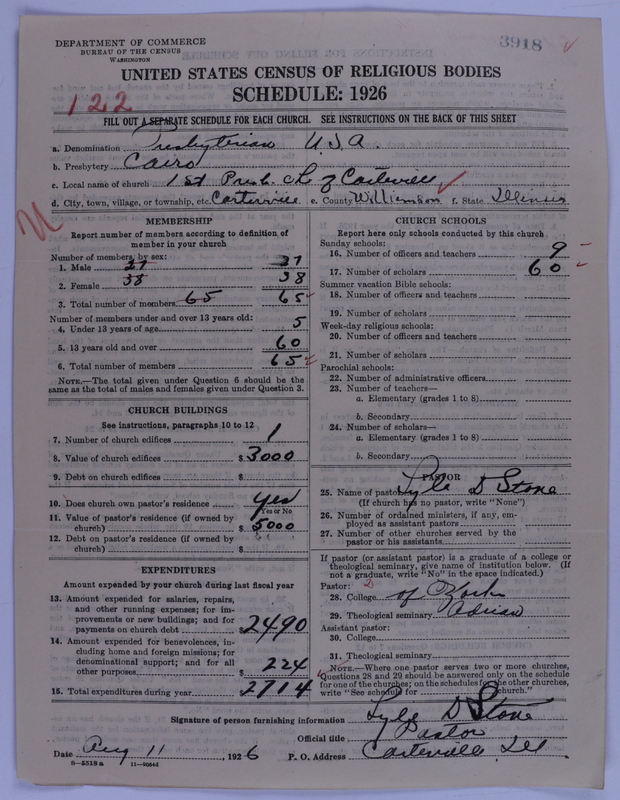 DEPARTMENT OF COMMERCE
BUREAU OF THE CENSUS
WASHINGTON
3918
UNITED STATES CENSUS OF RELIGIOUS BODIES
SCHEDULE: 1926
122
FILL OUT A SEPARATE SCHEDULE FOR EACH CHURCH. SEE INSTRUCTIONS ON THE BACK OF THIS SHEET
a. Denomination Presbyterian U.S.A.
b. Presbytery Cairo
c. Local name of church 1st Presb. Ch of Carterville
d. City, town, village, or township, etc. Carterville e. County Williamson f. State Illinois
MEMBERSHIP
Report number of members according to definition of
member in your church
Number of members, by sex:
1. Male 27 27
2. Female 38 38
3. Total number of members 65 65
Number of members under and over 13 years old:
4. Under 13 years of age 5
5. 13 years old and over 60
6. Total number of members 65
NOTE.—The total given under Question 6 should be the
same as the total of males and females given under Question 3.
CHURCH BUILDINGS
See instructions, paragraphs 10 to 12
7. Number of church edifices 1
8. Value of church edifices $ 3000
9. Debt on church edifices $
10. Does church own pastor's residence yes
Yes or No
11. Value of pastor's residence (if owned by
church) $ 5000
12. Debt on pastor's residence (if owned by
church) $
EXPENDITURES
Amount expended by your church during last fiscal year
13. Amount expended for salaries, repairs,
and other running expenses; for im-
provements or new buildings; and for
payments on church debt $ 2490
14. Amount expended for benevolences, in-
cluding home and foreign missions; for
denominational support; and for all
other purposes $ 224
15. Total expenditures during year 2714
CHURCH SCHOOLS
Report here only schools conducted by this church
Sunday schools:
16. Number of officers and teachers 9
17. Number of scholars 60
Summer vacation Bible schools:
18. Number of officers and teachers
19. Number of scholars
Week-day religious schools:
20. Number of officers and teachers
21. Number of scholars
Parochial schools:
22. Number of administrative officers
23. Number of teachers—
a. Elementary (grades 1 to 8)
b. Secondary
24. Number of scholars—
a. Elementary (grades 1 to 8)
b. Secondary
PASTOR
25. Name of pastor Lyle D Stone
(If church has no pastor, write "None")
26. Number of ordained ministers, if any, em-
ployed as assistant pastors
27. Number of other churches served by the
pastor or his assistants
If pastor (or assistant pastor) is a graduate of a college or
theological seminary, give name of institution below. (If
not a graduate, write "No" in the space indicated.)
Pastor:
28. College of York
29. Theological seminary Adrian
Assistant pastor:
30. College
31. Theological seminary
NOTE.—Where one pastor serves two or more churches,
Questions 28 and 29 should be answered only on the schedule
for one of the churches; on the schedules for the other churches,
write "See schedule for church."
Signature of person furnishing information Lyle D Stone
Official title Pastor
Date Aug 11, 1926 P. O. Address Carterville Ill
8—5518a